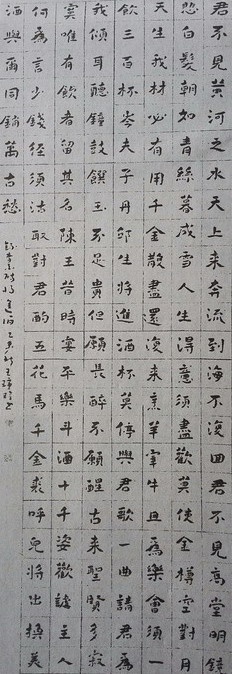 君不見黃河之水天上来奔流到海不復回君不見高堂明鏡
悲白髮朝如青絲暮成雪人生得意須盡歡莫使金樽空對月
天生我材必有用千金散盡還復来烹羊宰牛且為樂會須一
飲三百杯岑夫子丹邱生將進酒杯莫停與君歌一曲請君為
我傾耳聽鐘鼓饌玉不足貴但願長醉不願醒古来聖賢多寂
寞唯有飲者留其名陳王昔時宴平樂斗酒十千姿歡謔主人
何為言少錢徑須沽取對君酌五花馬千金裘呼兒將出換美
酒與爾同銷萬古愁